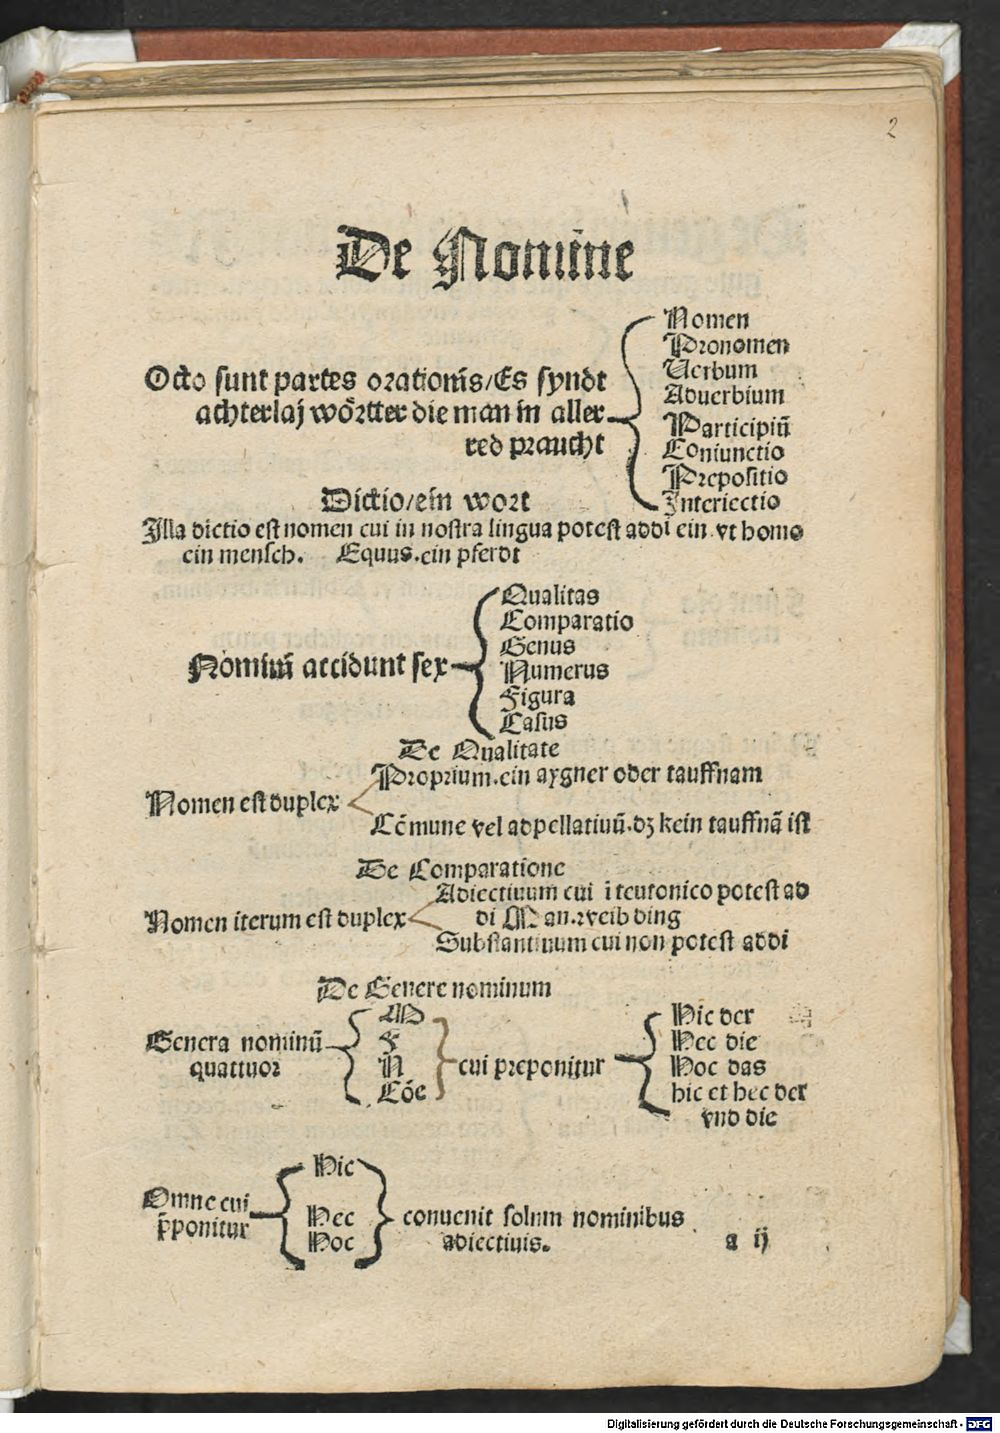 2
De Nomine
Octo sunt partes orationis/Es syndt
achterlaj wörtter die man in aller
red praucht
Nomen
Pronomen
Verbum
Aduerbium
Participiũ
Coniunctio
Prepositio
Interiectio
Dictio/ein wort
Illa dictio est nomen cui in nostra lingua potest addi ein.vt homo
ein mensch. Equus.ein pferdt
Nominũ accidunt sex
Qualitas
Comparatio
Genus
Numerus
Figura
Casus
De Qualitate
Nomen est duplex
Proprium.ein aygner oder tauffnam
Cõmune vel adpellatiuũ.dz kein tauffnã ist
De Comparatione
Nomen iterum est duplex
Adiectiuum cui ĩ teutonico potest ad
di Man.weib ding
Substantiuum cui non potest addi
De Genere nominum
Genera nominũ
quattuor
M
F
N
Cõe
cui preponitur
Hic der
Hec die
Hoc das
hic et hec der
vnd die
Omne cui
p̄ponitur
Hic
Hec
Hoc
conuenit solum nominibus
adiectiuis.
a ij
Digitalisierung gefördert durch die Deutsche Forschungsgemeinschaft - DFG